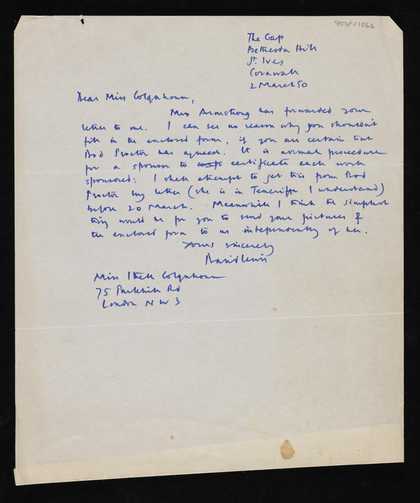 The Gap
Bethesda Hill
St. Ives
Cornwall
2 March 50
Dear Miss Colquhoun,
Mrs Armstrong has forwarded your
letter to me. I can see no reason why you shouldn't
fill in the enclosed form, if you are certain that
Dod Procter has agreed. It is normal procedure
for a sponsor to certificate each work
sponsored: I shall attempt to get this from Dod
Procter by letter (she is in Teneriffe I understand)
before 20 March. Meanwhile I think the simplest
thing would be for you to send your pictures &
the enclosed form to us independently of her.
Yours sincerely
Miss Ithell Colquhoun
75 Parkhill Rd
London N W 3